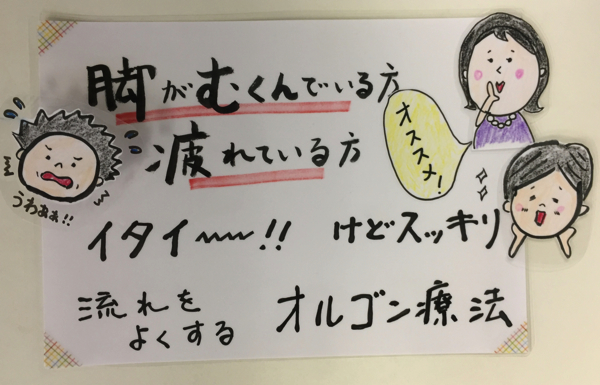 脚がむくんでいる方
疲れている方
オススメ!
うわぁぁ!!
イタイ〜〜!! けどスッキリ
流れを
よくする
オルゴン療法